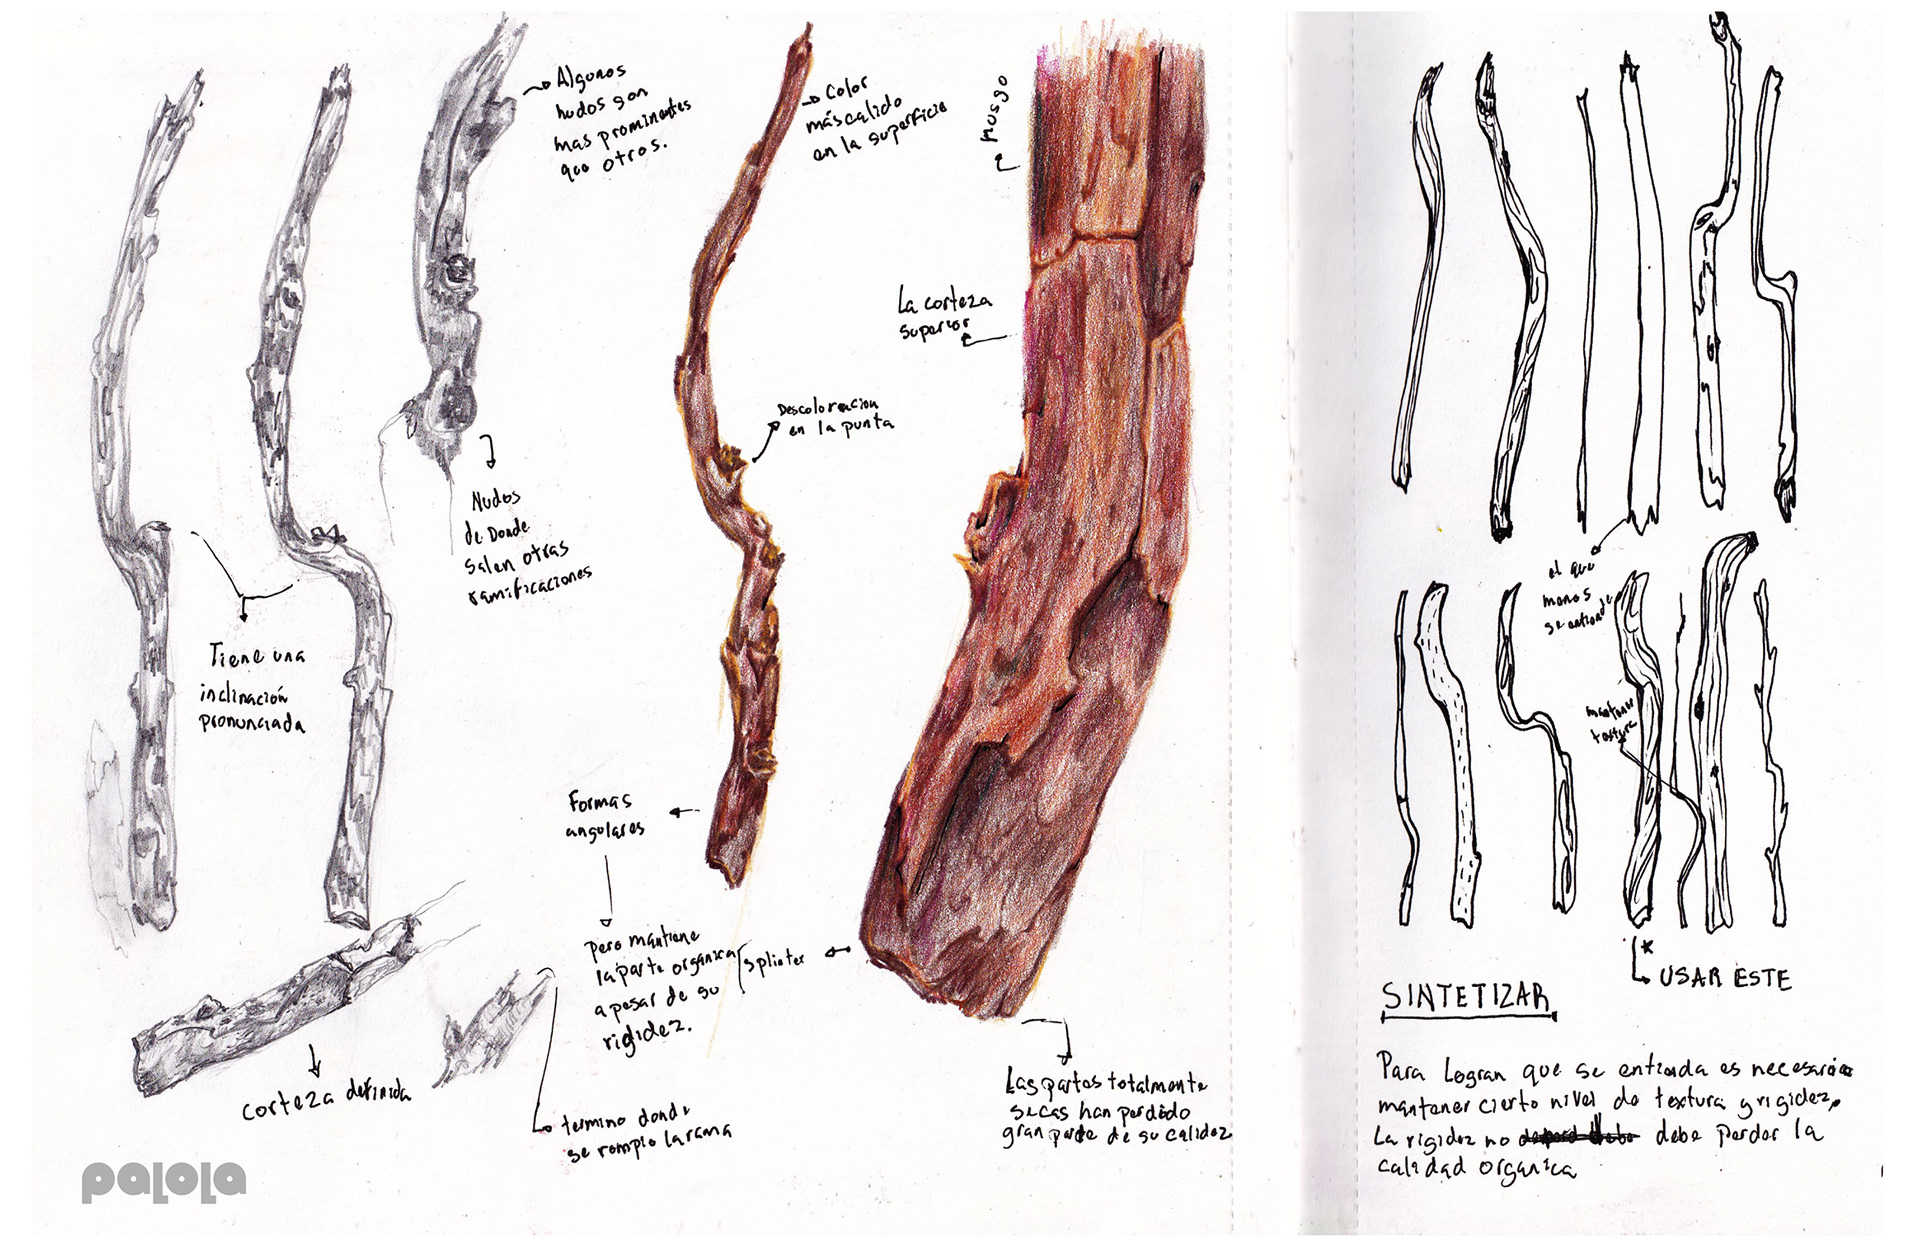 Algunos
nudos son
mas prominentes
que otros.
Color
más calido
en la superficie
Musgo
La corteza
superior
Descoloracion
en la punta
Nudos
de Donde
salen otras
ramificaciones
Tiene una
inclinación
pronunciada
Formas
angulares
pero mantiene
la parte organica
a pesar de su
rigidez.
splinter
corteza definida
termino donde
se rompio la rama
Las partes totalmente
secas han perdido
gran parte de su calidez
el que
menos
se entiende
mantener
textura
* USAR ESTE
SINTETIZAR
Para Logran que se entienda es necesario
mantener cierto nivel de textura y rigidez,
La rigidez no debe perder la
calidad organica
palola